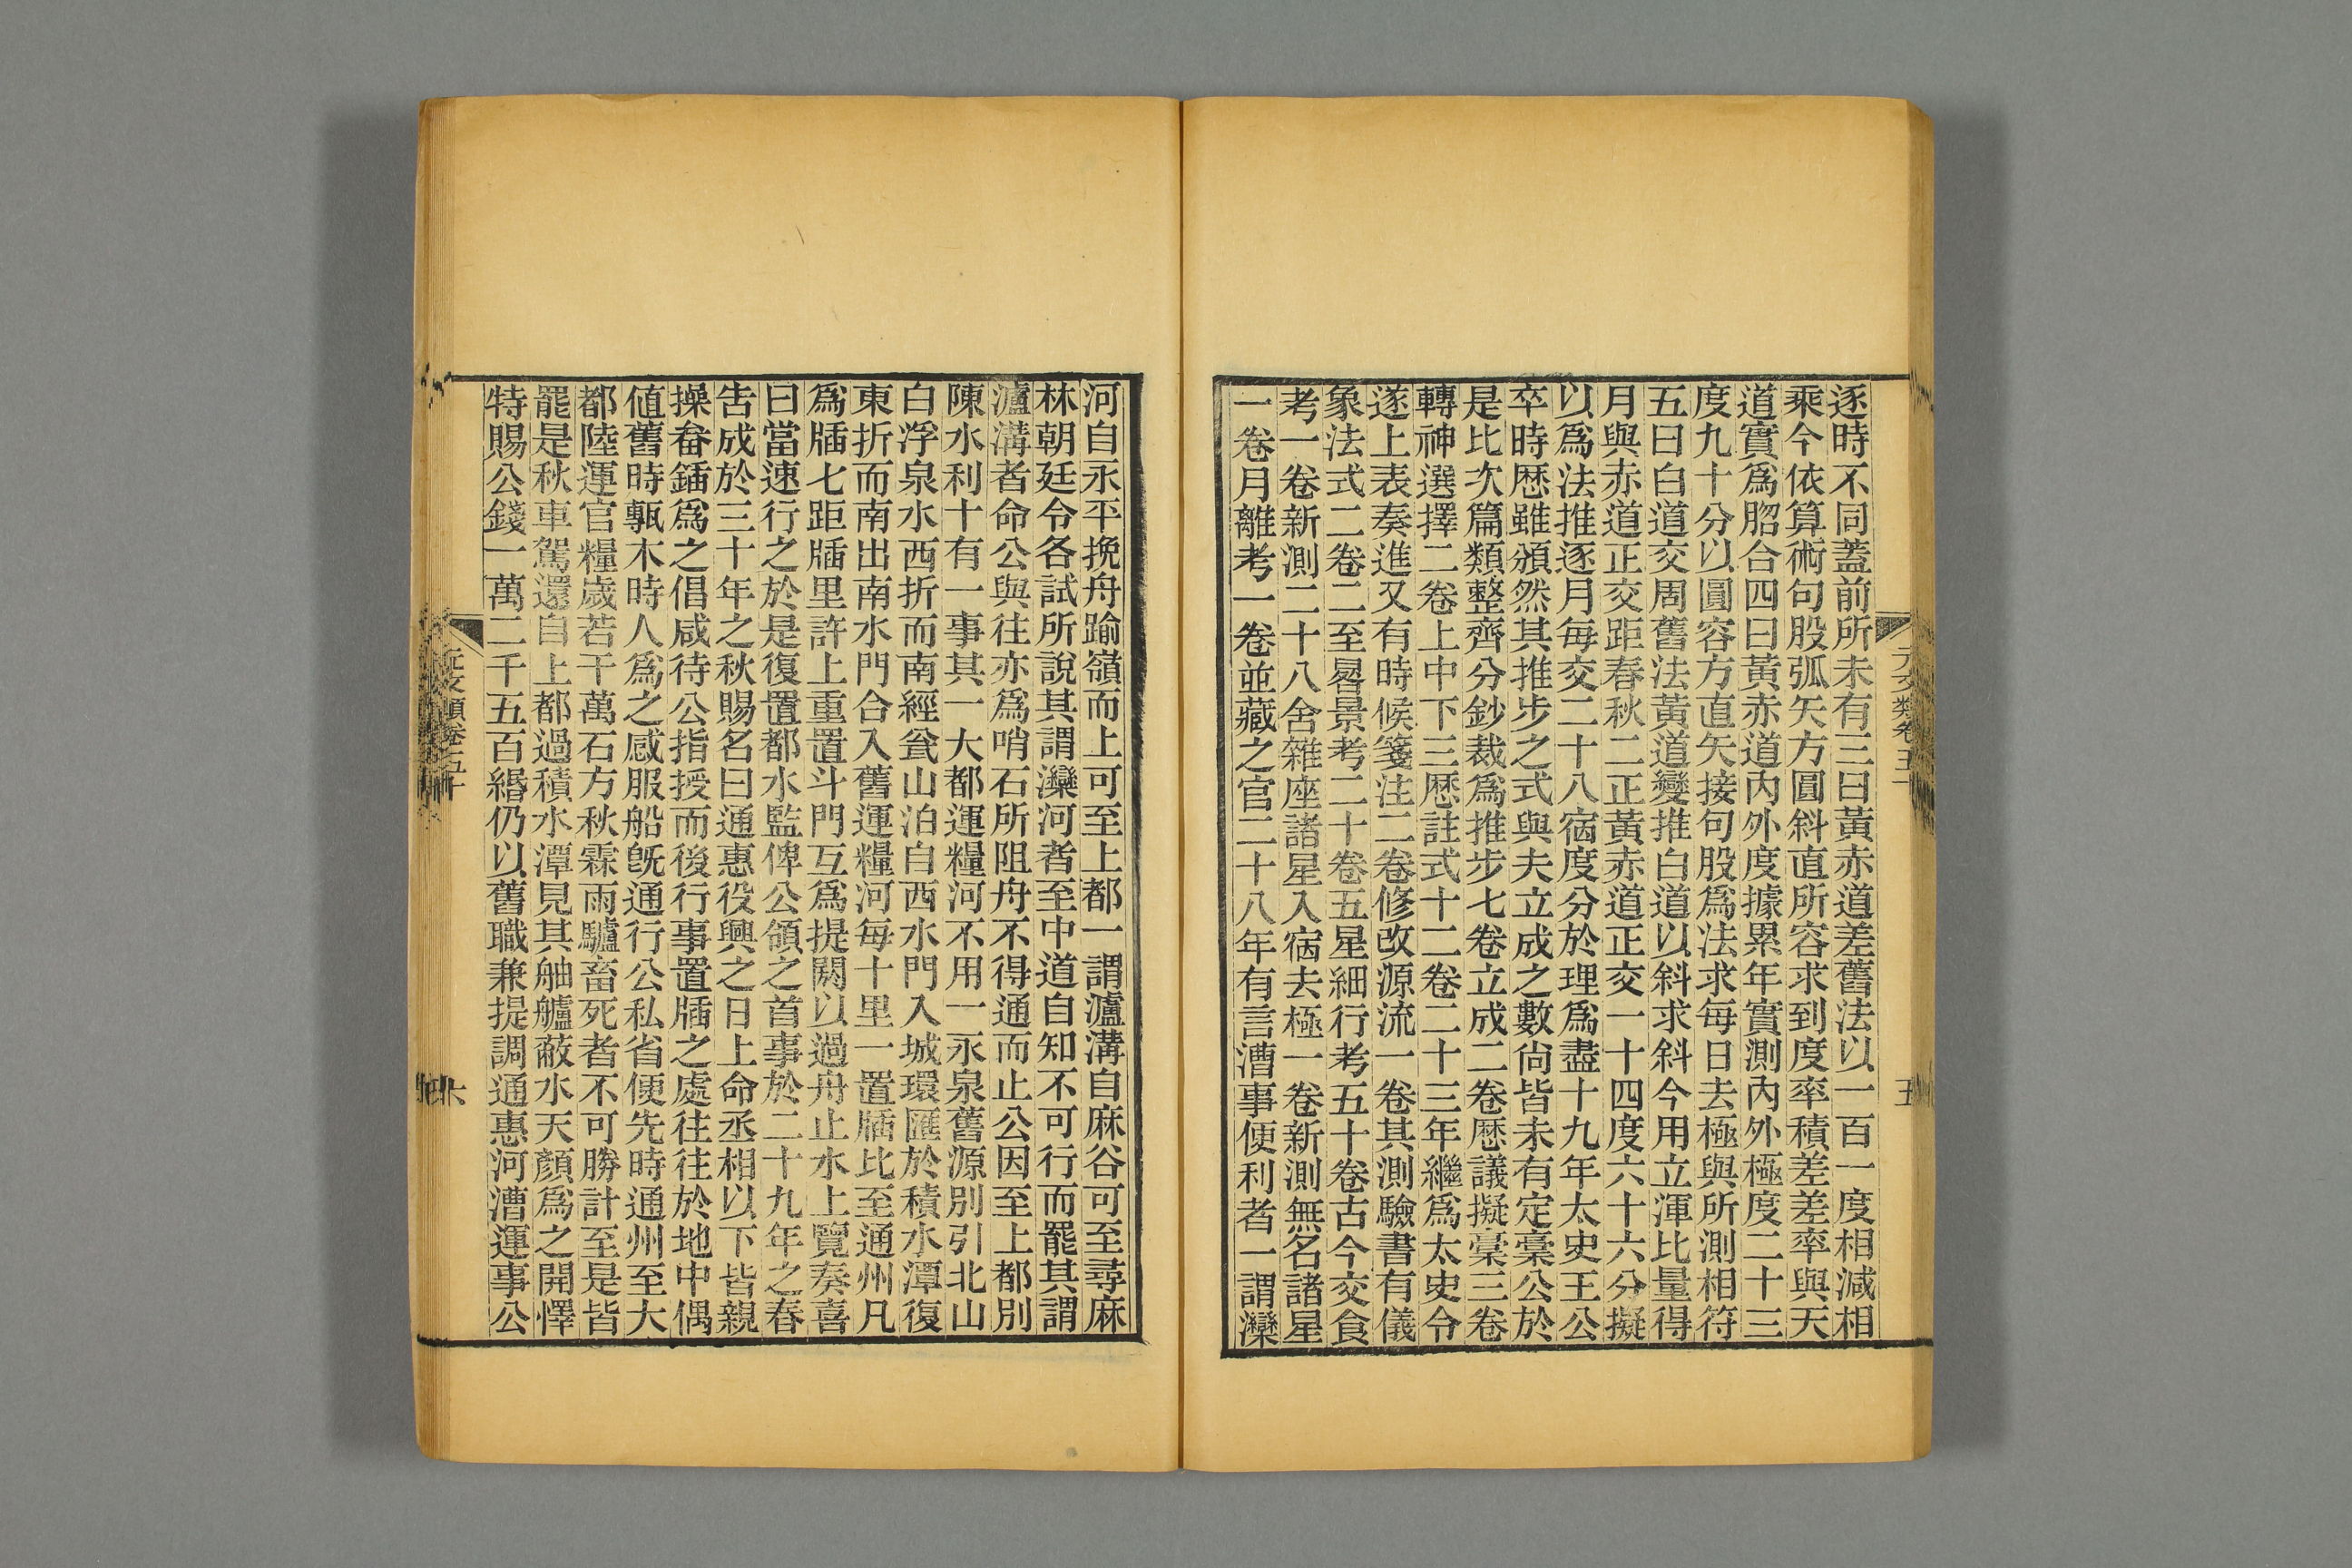 元文類卷五十
五
逐時不同蓋前所未有三曰黃赤道差舊法以一百一度相減相
乘今依算術句股弧矢方圓斜直所容求到度率積差差率與天
道實爲脗合四曰黃赤道內外度據累年實測內外極度二十三
度九十分以圓容方直矢接句股爲法求每日去極與所測相符
五曰白道交周舊法黃道變推白道以斜求斜今用立渾比量得
月與赤道正交距春秋二正黃赤道正交一十四度六十六分擬
以爲法推逐月每交二十八宿度分於理爲盡十九年太史王公
卒時厯雖頒然其推步之式與夫立成之數尙皆未有定稾公於
是比次篇類整齊分鈔裁爲推步七卷立成二卷厯議擬稾三卷
轉神選擇二卷上中下三厯註式十二卷二十三年繼爲太史令
遂上表奏進又有時候箋注二卷修改源流一卷其測驗書有儀
象法式二卷二至晷景考二十卷五星細行考五十卷古今交食
考一卷新測二十八舍雜座諸星入宿去極一卷新測無名諸星
一卷月離考一卷並藏之官二十八年有言漕事便利者一謂灤
河自永平挽舟踰嶺而上可至上都一謂瀘溝自麻谷可至尋麻
林朝廷令各試所說其謂灤河者至中道自知不可行而罷其謂
瀘溝者命公與往亦爲哨石所阻舟不得通而止公因至上都別
陳水利十有一事其一大都運糧河不用一畝泉舊源別引北山
白浮泉水西折而南經瓮山泊自西水門入城環匯於積水潭復
東折而南出南水門合入舊運糧河每十里一置牐比至通州凡
爲牐七距牐里許上重置斗門互爲提閼以過舟止水上覽奏喜
曰當速行之於是復置都水監俾公領之首事於二十九年之春
吿成於三十年之秋賜名曰通惠役興之日上命丞相以下皆親
操畚鍤爲之倡咸待公指授而後行事置牐之處往往於地中偶
値舊時甎木時人爲之感服船旣通行公私省便先時通州至大
都陸運官糧歲若干萬石方秋霖雨驢畜死者不可勝計至是皆
罷是秋車駕還自上都過積水潭見其舳艫蔽水天顏爲之開懌
特賜公錢一萬二千五百緡仍以舊職兼提調通惠河漕運事公
元文類卷五十
六